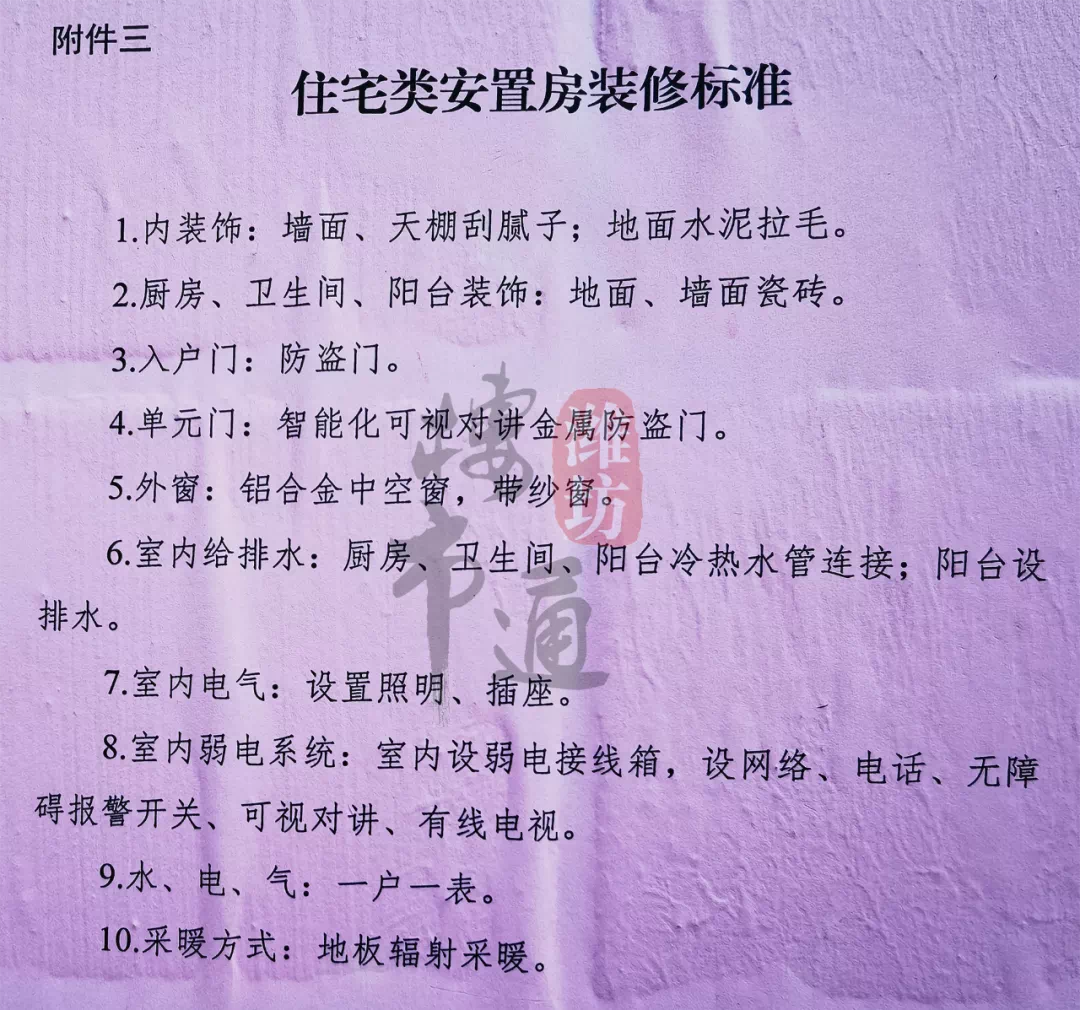 附件三
住宅类安置房装修标准
1.内装饰：墙面、天棚刮腻子；地面水泥拉毛。
2.厨房、卫生间、阳台装饰：地面、墙面瓷砖。
3.入户门：防盗门。
4.单元门：智能化可视对讲金属防盗门。
5.外窗：铝合金中空窗，带纱窗。
6.室内给排水：厨房、卫生间、阳台冷热水管连接；阳台设
排水。
7.室内电气：设置照明、插座。
8.室内弱电系统：室内设弱电接线箱，设网络、电话、无障
碍报警开关、可视对讲、有线电视。
9.水、电、气：一户一表。
10.采暖方式：地板辐射采暖。
潍坊
楼市通